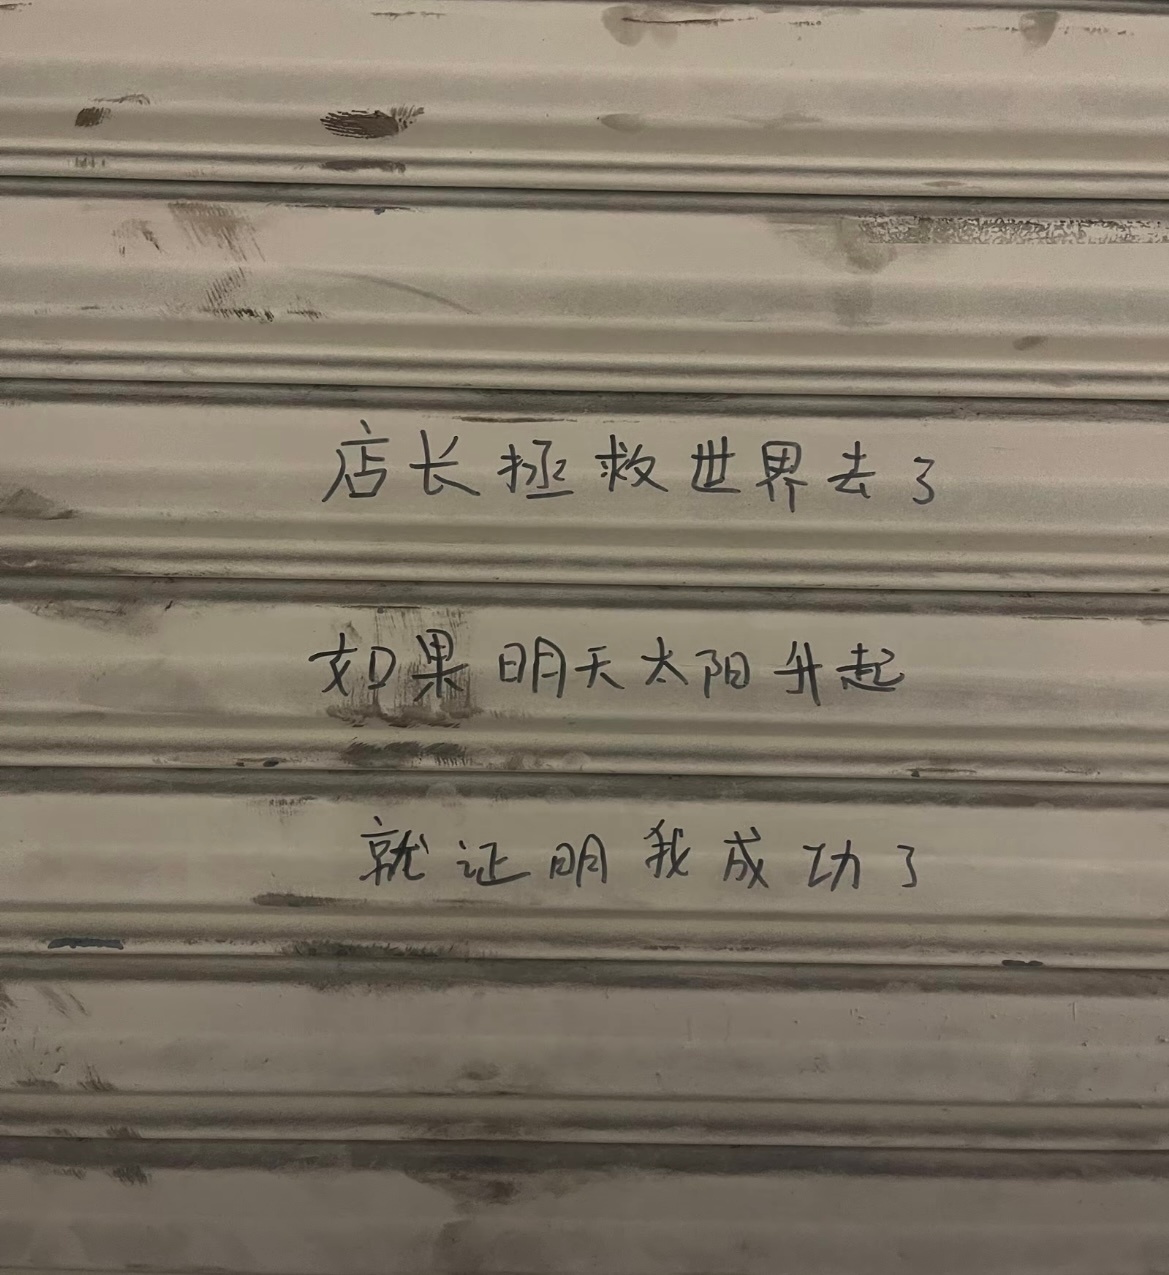 店长拯救世界去了
如果明天太阳升起
就证明我成功了